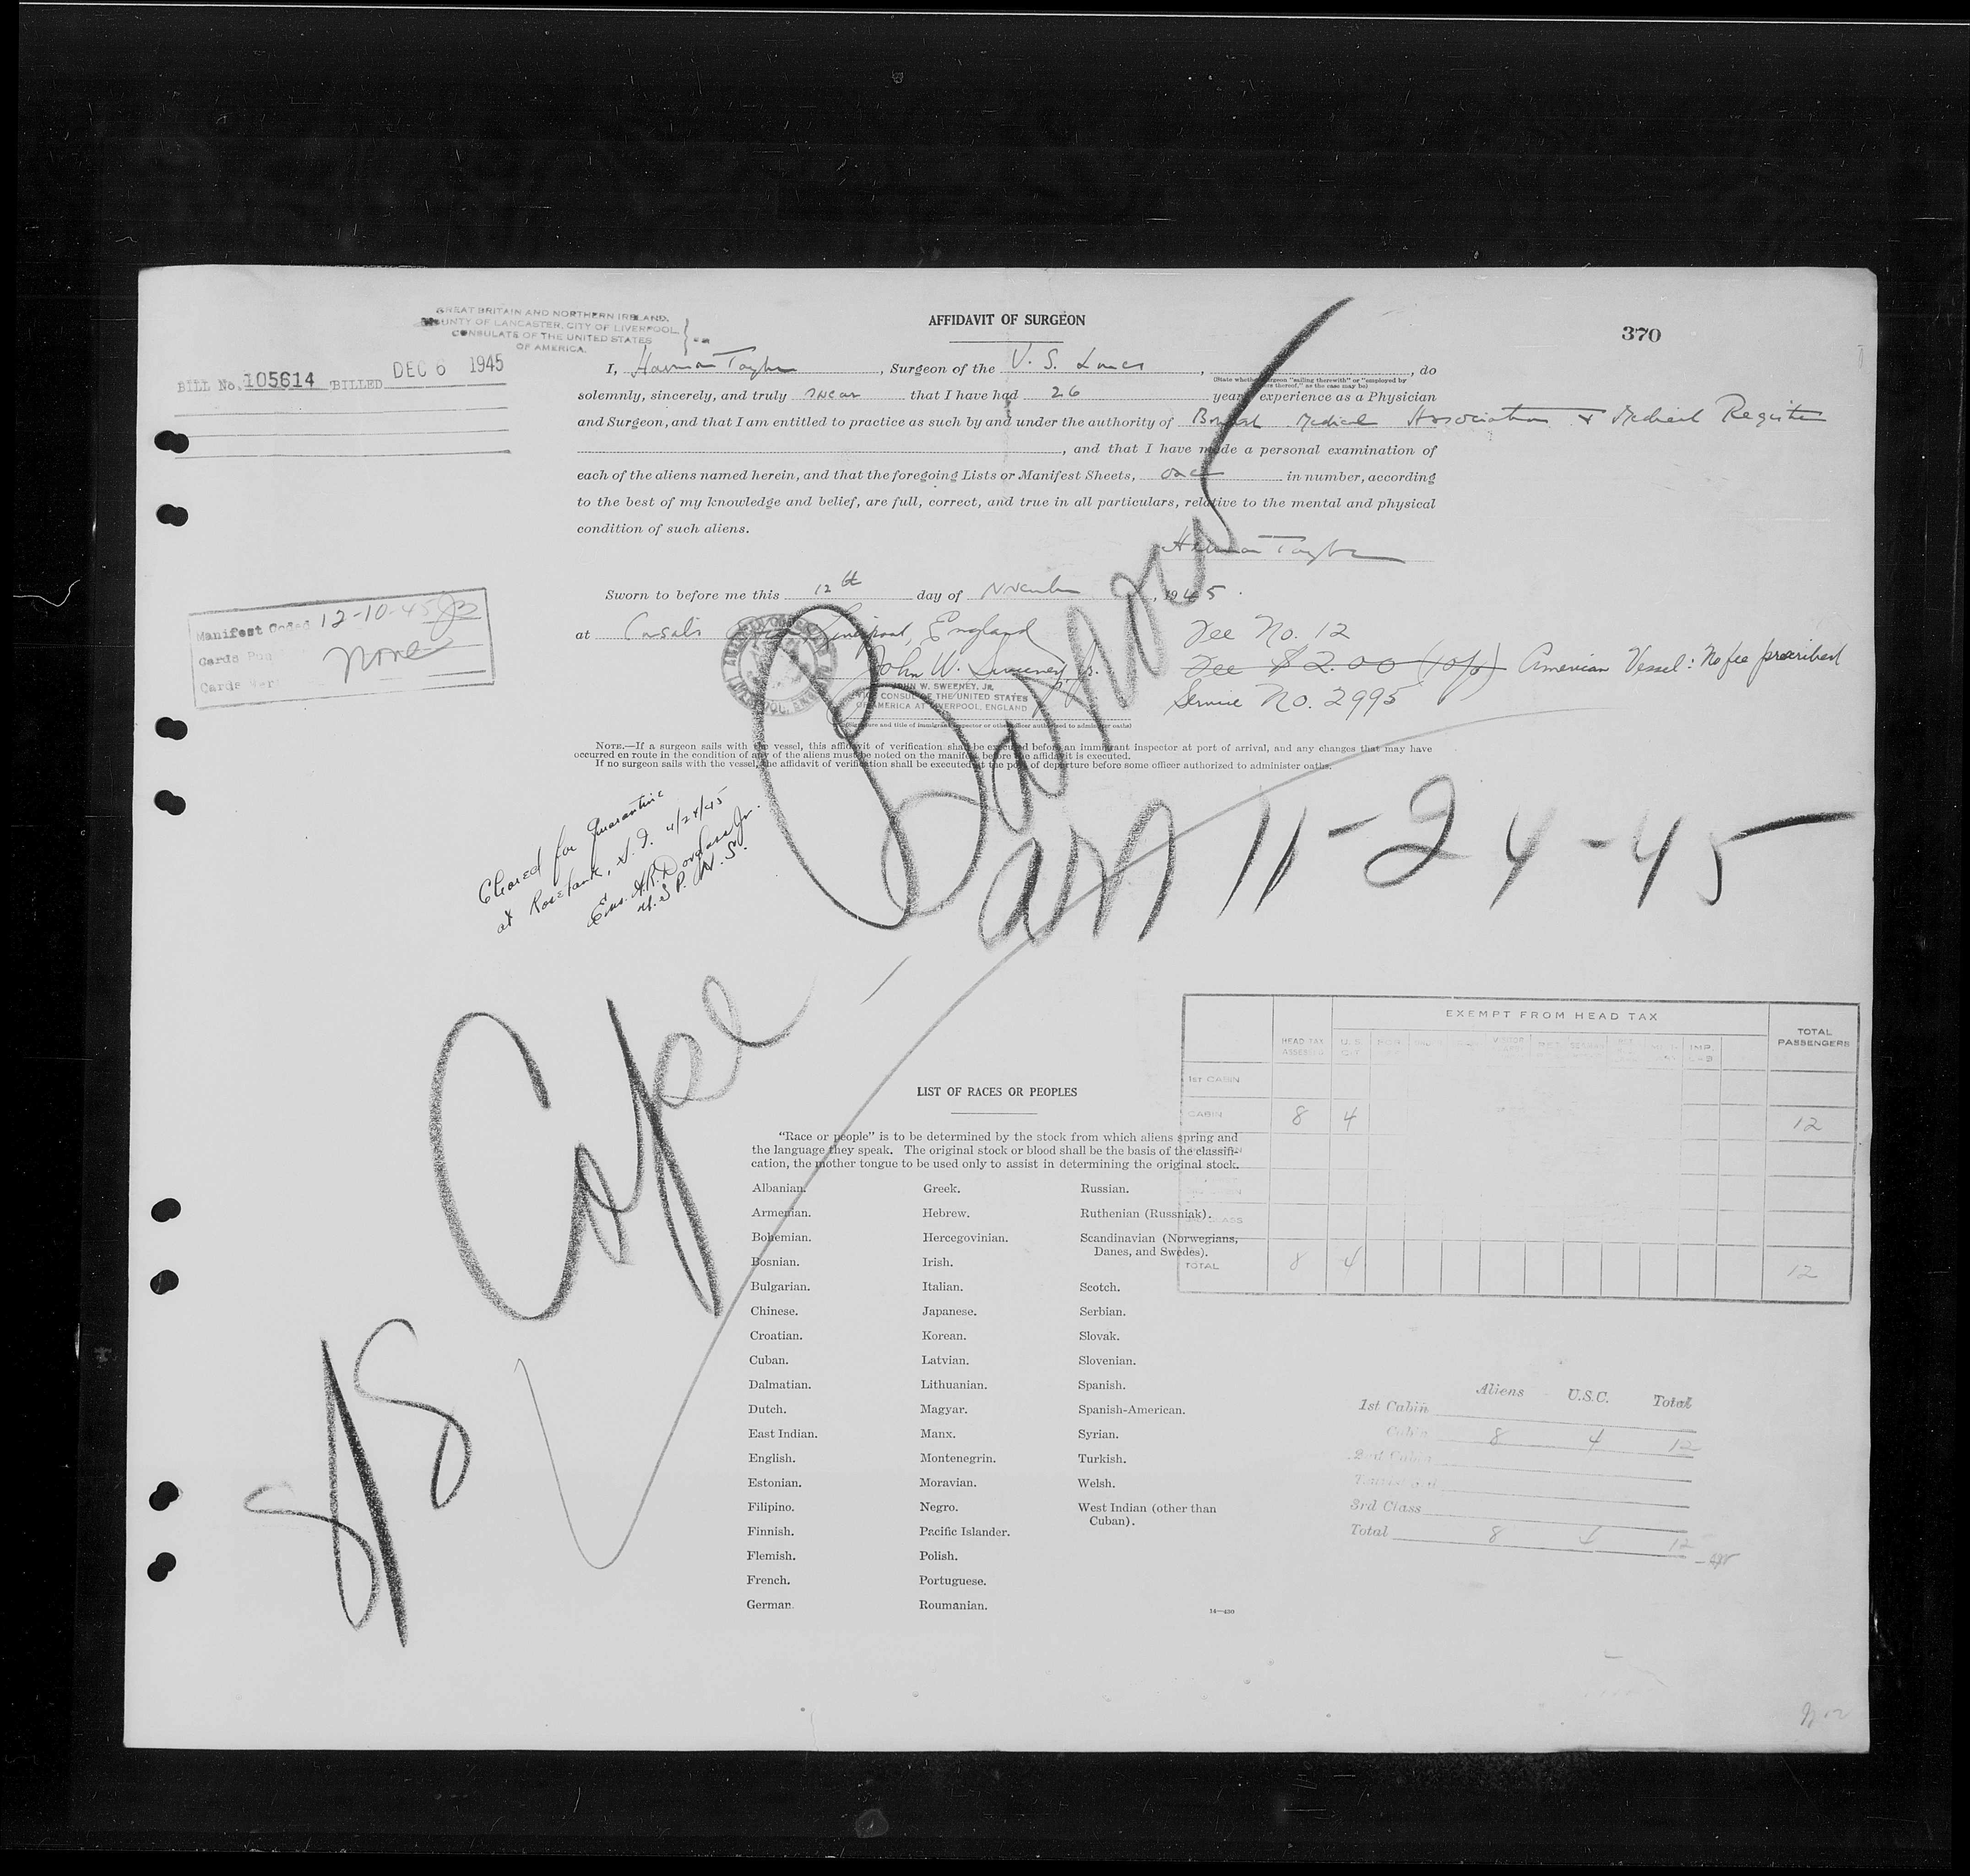 GREAT BRITAIN AND NORTHERN IRELAND,
COUNTY OF LANCASTER, CITY OF LIVERPOOL,
CONSULATE OF THE UNITED STATES
OF AMERICA.
BILL No. 105614 BILLED DEC 6 1945
AFFIDAVIT OF SURGEON
370
I, Taylor, Surgeon of the, do
(State whether surgeon "sailing therewith" or "employed by
owners thereof," as the case may be)
solemnly, sincerely, and truly swear that I have had 26 years' experience as a Physician
and Surgeon, and that I am entitled to practice as such by and under the authority of British Medical Association & Medical Register
, and that I have made a personal examination of
each of the aliens named herein, and that the foregoing Lists or Manifest Sheets, one in number, according
to the best of my knowledge and belief, are full, correct, and true in all particulars, relative to the mental and physical
condition of such aliens.
Taylor
Sworn to before me this 12th day of November, 1945.
at Liverpool, England
John W. Sweeney, Jr.
JOHN W. SWEENEY, JR.
CONSUL OF THE UNITED STATES
OF AMERICA AT LIVERPOOL, ENGLAND
(Signature and title of immigrant inspector or other officer authorized to administer oaths)
Fee No. 12
Fee $2.00 American Vessel: No fee prescribed
Service No. 2995
Manifest Coded 12-10-45
Cards
None
Cards
NOTE.—If a surgeon sails with the vessel, this affidavit of verification shall be executed before an immigrant inspector at port of arrival, and any changes that may have
occurred en route in the condition of any of the aliens must be noted on the manifest before the affidavit is executed.
If no surgeon sails with the vessel, the affidavit of verification shall be executed at the port of departure before some officer authorized to administer oaths.
Cleared for Quarantine
at Rosebank,
S/S Cape Barnow
arr 11-24-45
EXEMPT FROM HEAD TAX
HEAD TAX
ASSESSED
U.S.
TOTAL
PASSENGERS
1ST CABIN
CABIN 8 4 12
TOTAL 8 4 12
LIST OF RACES OR PEOPLES
"Race or people" is to be determined by the stock from which aliens spring and
the language they speak. The original stock or blood shall be the basis of the classifi-
cation, the mother tongue to be used only to assist in determining the original stock.
Albanian.
Armenian.
Bohemian.
Bosnian.
Bulgarian.
Chinese.
Croatian.
Cuban.
Dalmatian.
Dutch.
East Indian.
English.
Estonian.
Filipino.
Finnish.
Flemish.
French.
German.
Greek.
Hebrew.
Hercegovinian.
Irish.
Italian.
Japanese.
Korean.
Latvian.
Lithuanian.
Magyar.
Manx.
Montenegrin.
Moravian.
Negro.
Pacific Islander.
Polish.
Portuguese.
Roumanian.
Russian.
Ruthenian (Russniak).
Scandinavian (Norwegians,
Danes, and Swedes).
Scotch.
Serbian.
Slovak.
Slovenian.
Spanish.
Spanish-American.
Syrian.
Turkish.
Welsh.
West Indian (other than
Cuban).
Aliens U.S.C. Total
1st Cabin
Cabin 8 4 12
2nd Cabin
3rd Class
Total 8 4 12